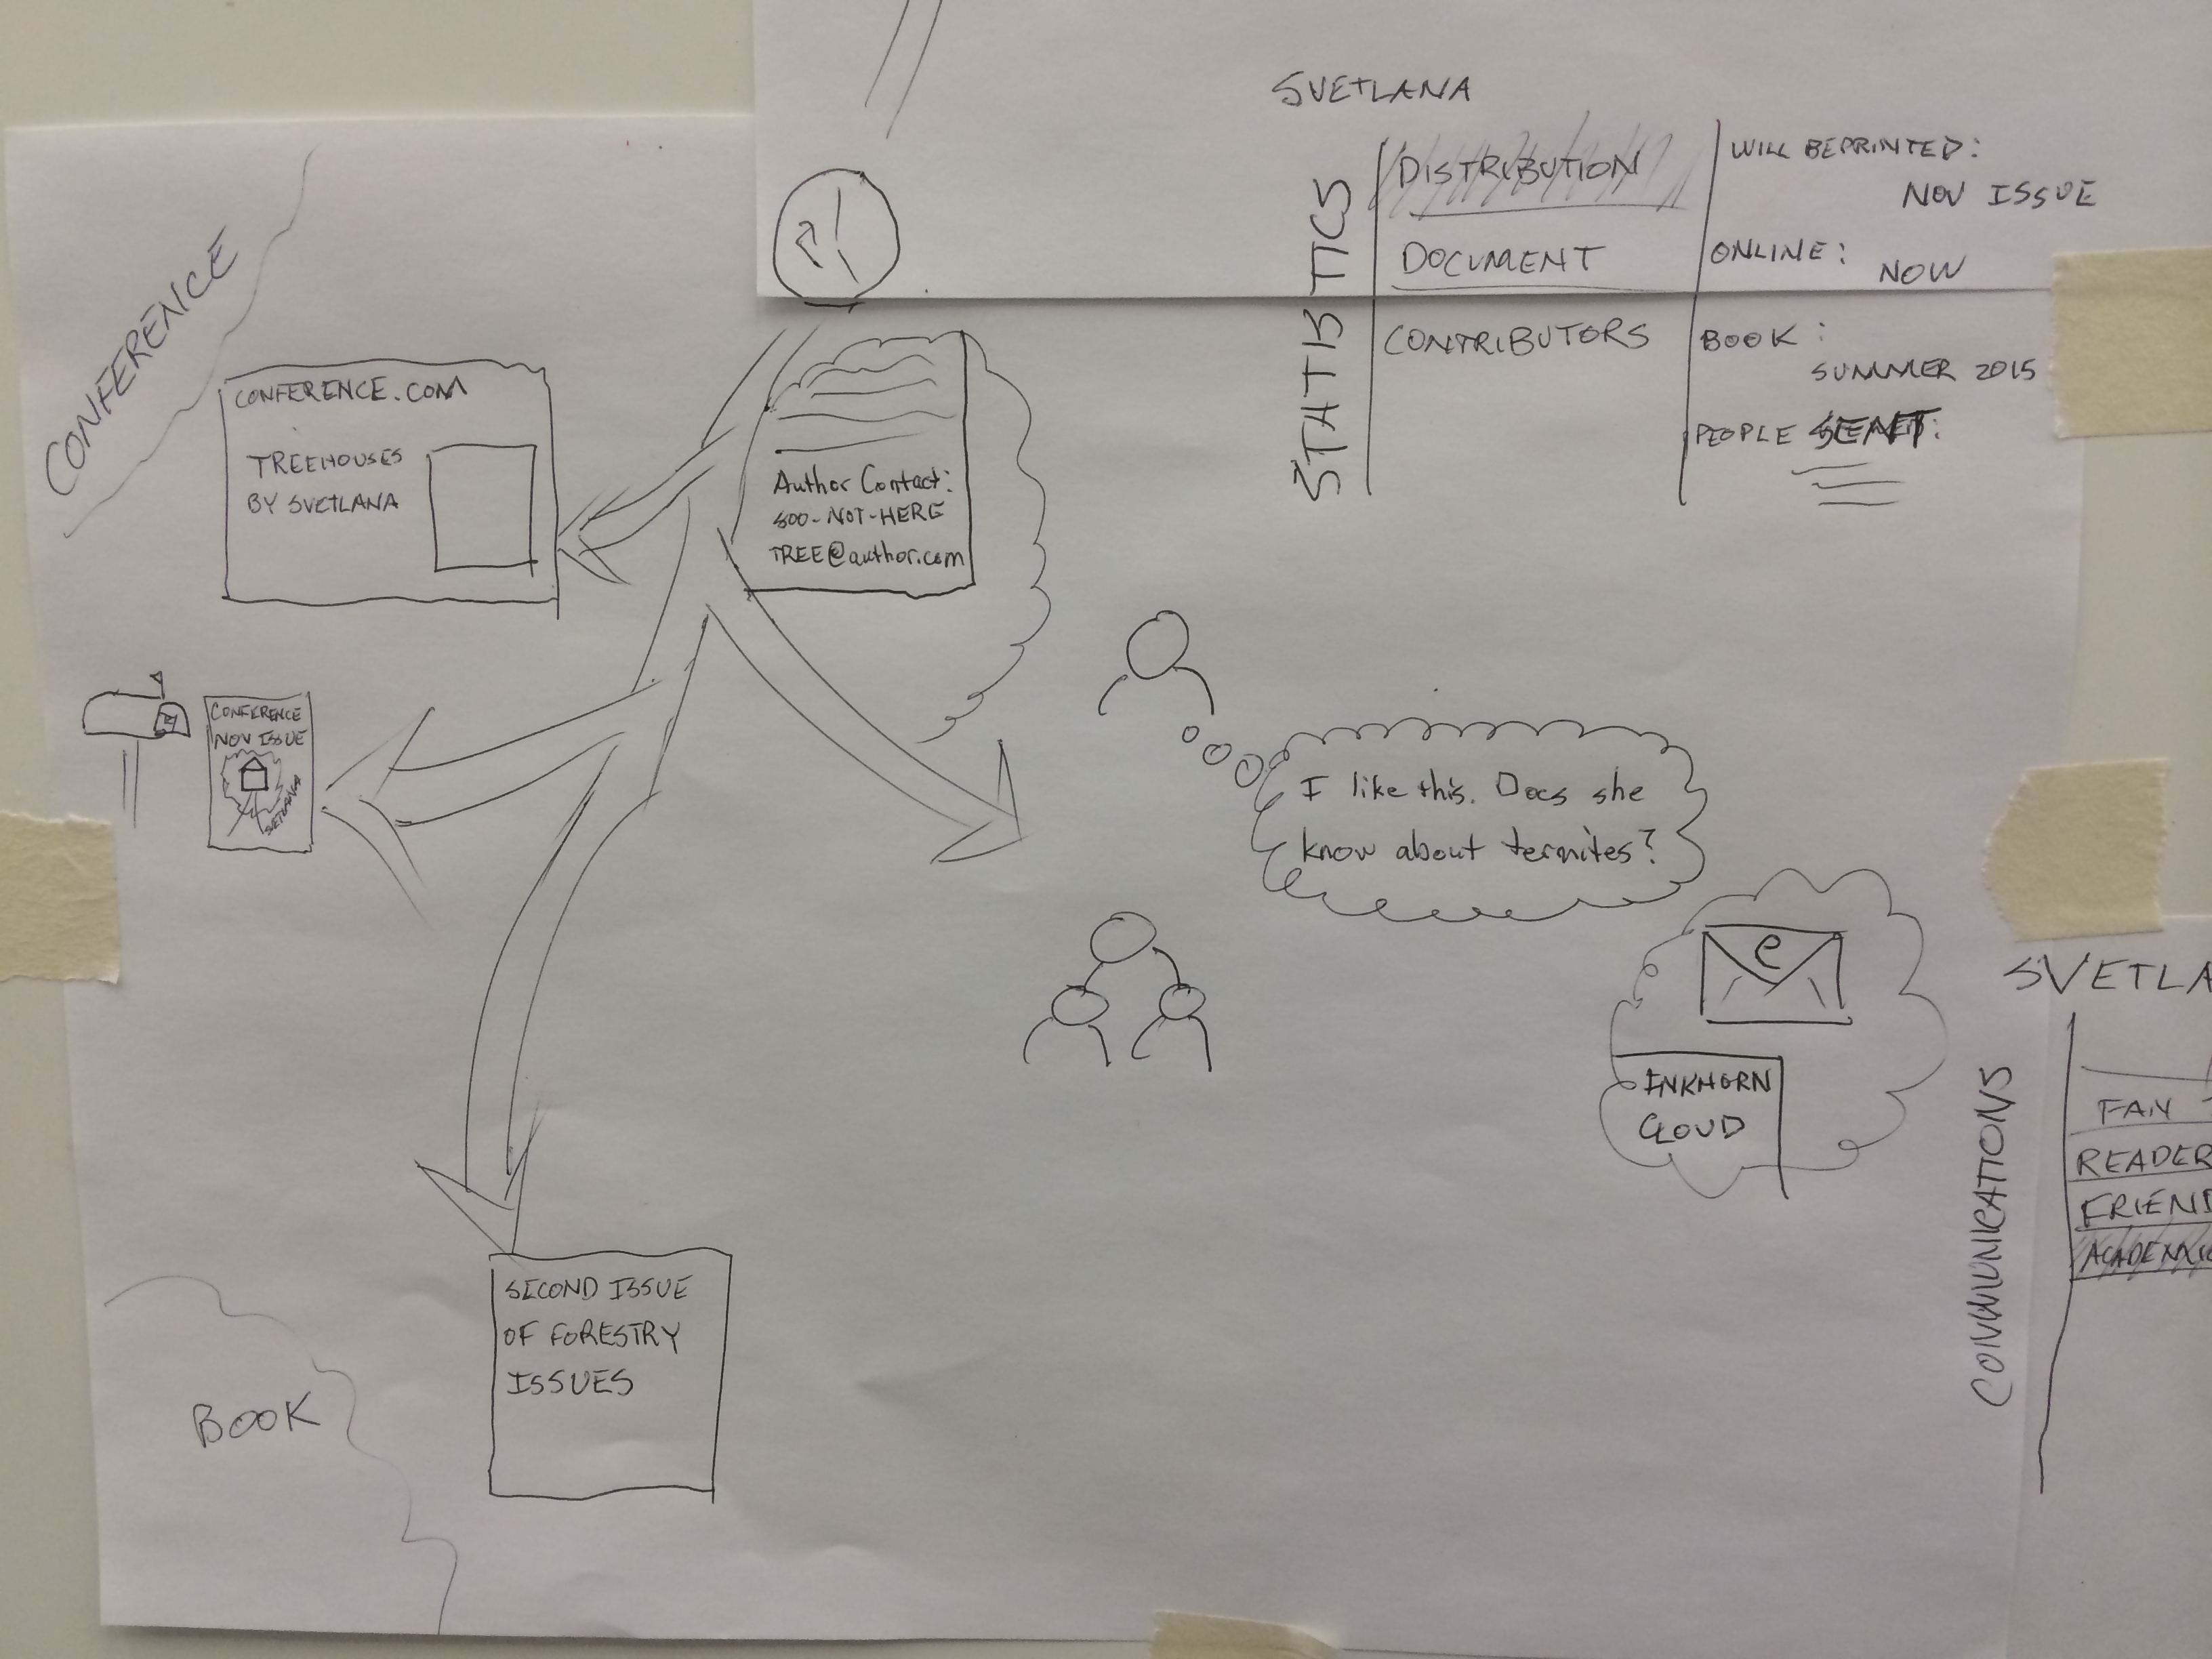 SVETLANA
STATISTICS
DISTRIBUTION
DOCUMENT
CONTRIBUTORS
WILL BE PRINTED:
NOV ISSUE
ONLINE:
NOW
BOOK:
SUMMER 2015
PEOPLE SENT:
CONFERENCE
?!
CONFERENCE.COM
TREEHOUSES
BY SVETLANA
Author Contact:
800-NOT-HERE
TREE@author.com
CONFERENCE
NOV ISSUE
SVETLANA
I like this. Does she
know about termites?
e
INKHORN
CLOUD
SECOND ISSUE
OF FORESTRY
ISSUES
BOOK
SVETLA
COMMUNICATIONS
FAN
READER
FRIEND
ACADEMIC